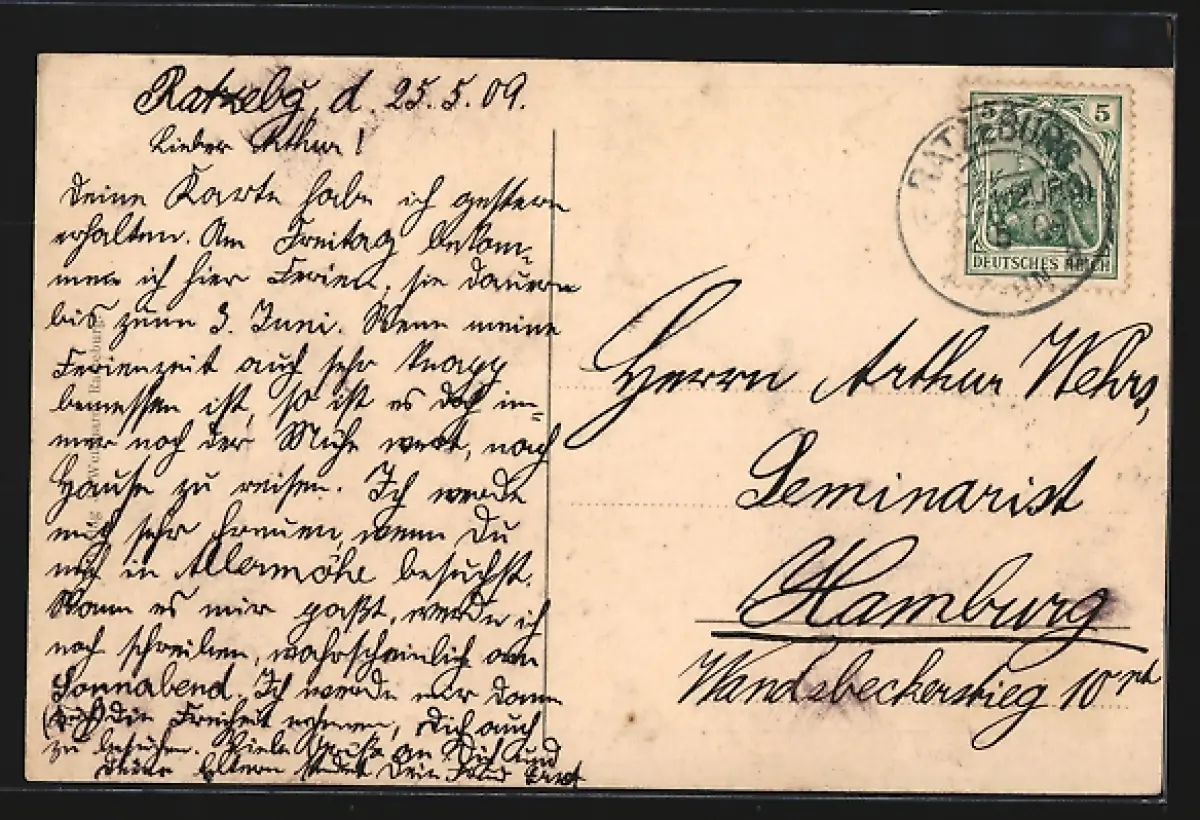 Ratzebg, d. 25. 5. 09.
Lieber Arthur!
Deine Karte habe ich gestern
erhalten. Am Freitag bekom-
men ich hier Ferien, sie dauern
bis zum 3. Juni. Wenn meine
Ferienzeit auch sehr knapp
bemessen ist, so ist es doch im-
mer noch der Mühe wert, nach
Hause zu reisen. Ich werde
mich sehr freuen, wenn Du
mich in Allermöhe besuchst.
Wann es mir paßt, werde ich
noch schreiben, wahrscheinlich am
Sonnabend. Ich werde mir dann
die Freiheit nehmen, Dich auch
zu besuchen. Viele Grüße an Dich und
Deine Eltern sendet Dein Freund
5 5
DEUTSCHES REICH
RATZEBURG
Herrn Arthur Wehrs,
Seminarist
Hamburg
Wandsbeckerstieg 10